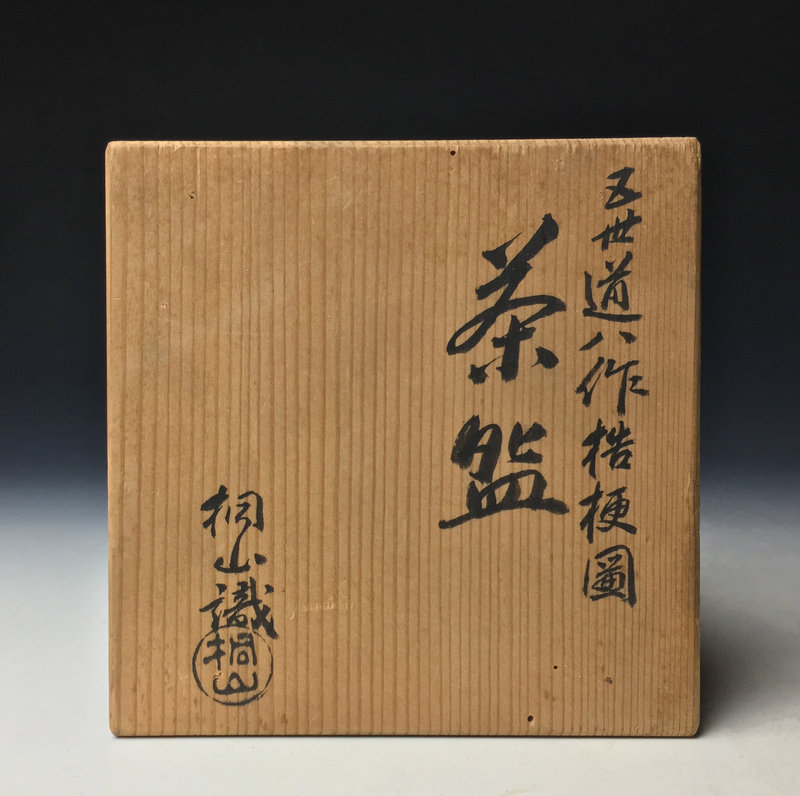 五世道八作桔梗圖
茶盌
桐山識
桐山